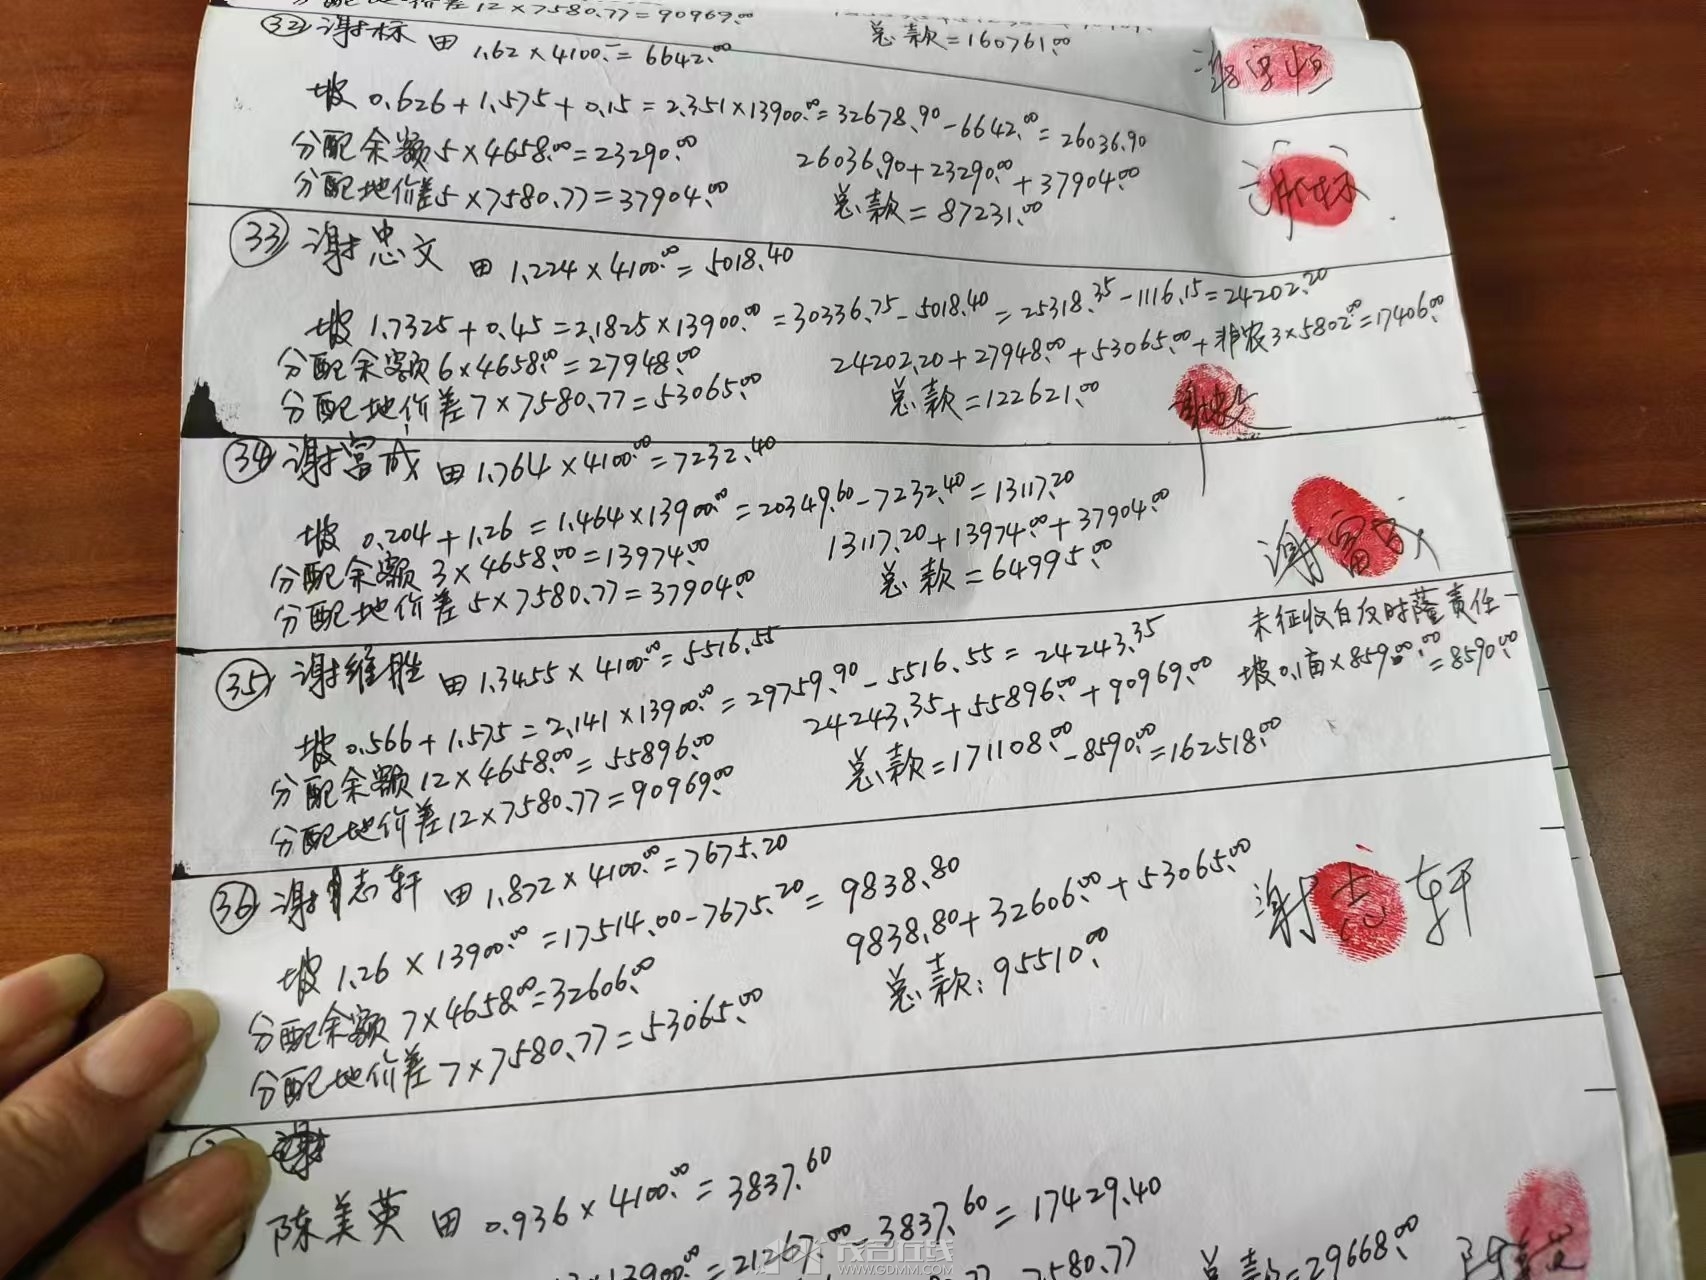 分配地价差12×7580.77=90969.00
总款=160761.00
㉜谢标 田 1.62×4100.=6642.00
坡 0.626+1.575+0.15=2.351×13900.00=32678.90-6642.00=26036.90
分配余额5×4658.00=23290.00 26036.90+23290.00+37904.00
分配地价差5×7580.77=37904.00 总款=87231.00
谢标
㉝谢忠文 田 1.224×4100.00=5018.40
坡 1.7325+0.45=2.1825×13900.00=30336.75-5018.40=25318.35-1116.15=24202.20
分配余额6×4658.00=27948.00 24202.20+27948.00+53065.00+非农3×5802.00=17406.00
分配地价差7×7580.77=53065.00 总款=122621.00
㉞谢富成 田 1.764×4100.00=7232.40
坡 0.204+1.26=1.464×13900.00=20349.60-7232.40=13117.20
分配余额 3×4658.00=13974.00 13117.20+13974.00+37904.00
分配地价差5×7580.77=37904.00 总款=64995.00
谢富成
㉟谢维胜 田 1.3455×4100.00=5516.55
未征收自反时隆责任
坡 0.566+1.575=2.141×13900.00=29759.90-5516.55=24243.35
坡0.1亩×85900.00=8590.00
分配余额12×4658.00=55896.00 24243.35+55896.00+90969.00
分配地价差12×7580.77=90969.00 总款=171108.00-8590.00=162518.00
㊱谢志轩 田 1.872×4100.00=7675.20
坡 1.26×13900.00=17514.00-7675.20=9838.80
分配余额 7×4658.00=32606.00 9838.80+32606.00+53065.00
分配地价差7×7580.77=53065.00 总款:95510.00
谢志轩
陈美英 田 0.936×4100.00=3837.60
×13900.00=21267.00-3837.60=17429.40
7580.77 总款=29668.00
茂名在线
WWW.GDMM.COM